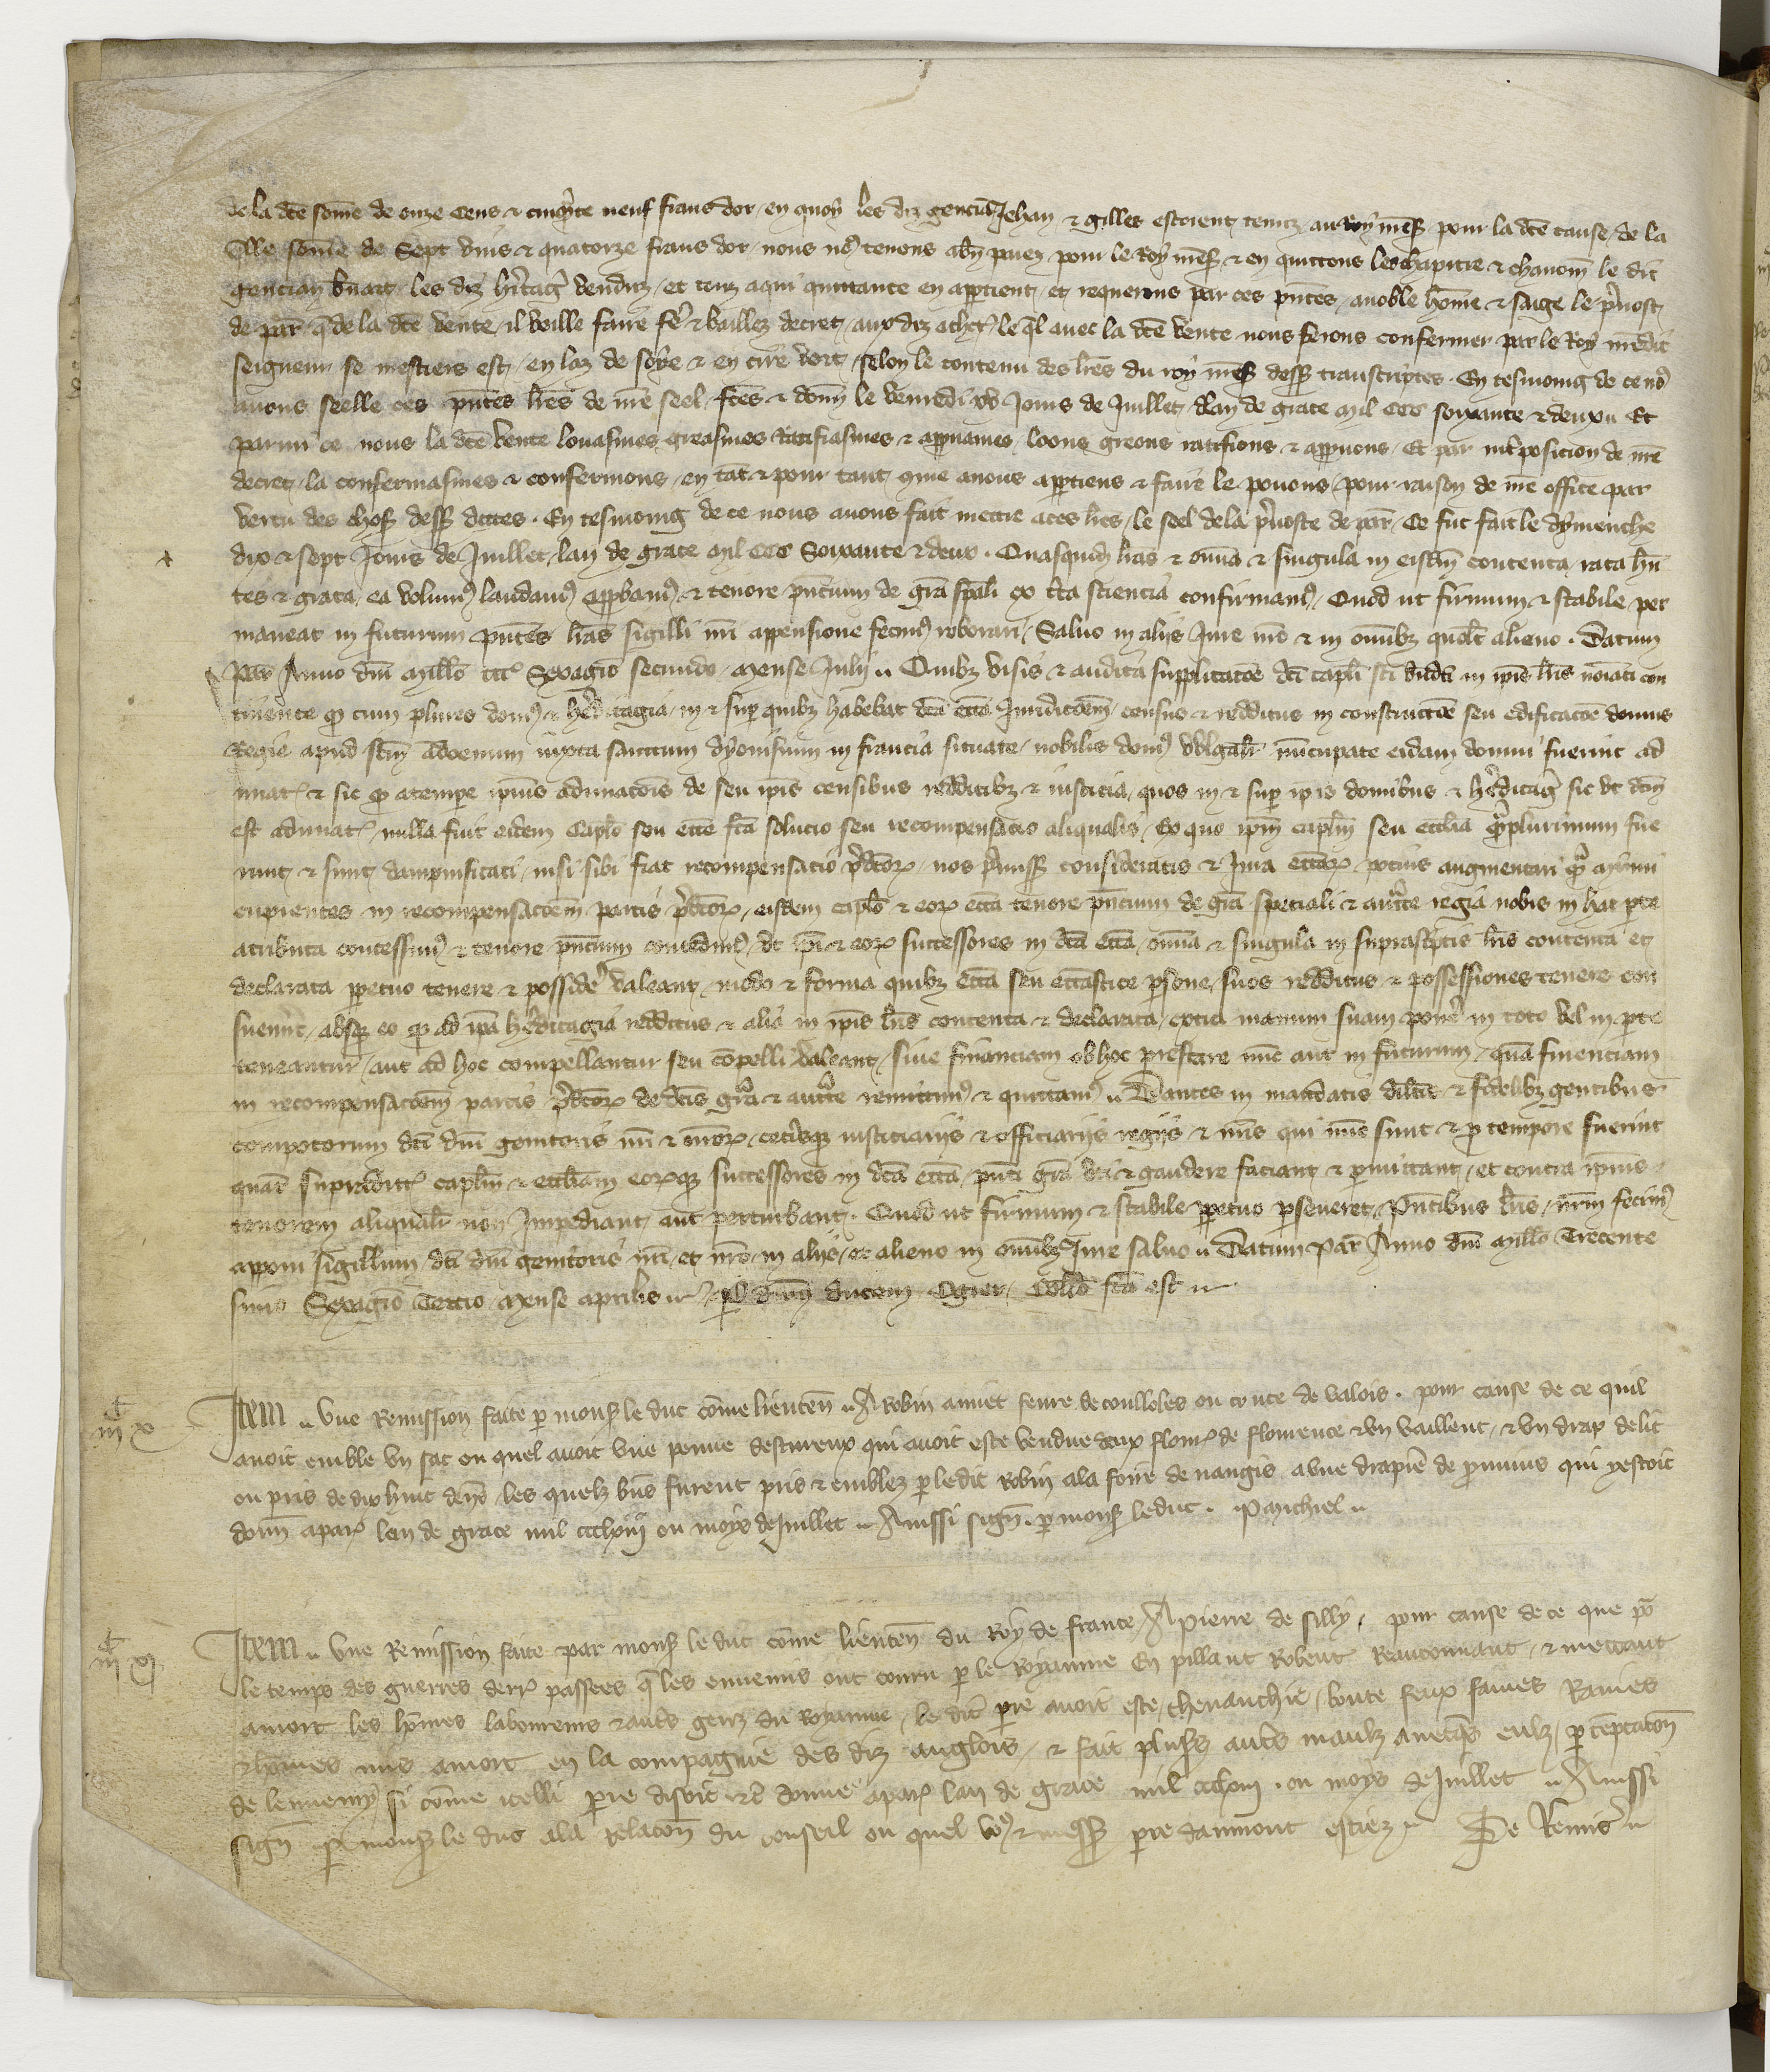 de la dce some de onze cens & cinqte neuf frans dor en quoy les diz gencian Jehan & gilles estoient tenuz au roy mess pour la dce cause de la
Qlle some de Sept vins & quatorze frans dor nous no tenons a bn paiez pour le Roy mess & en quittons les chapitre & chanoin le dit
gencian les diz hitag venduz et touz a qui quittance en aptient et requerons par ces pntes a noble home & sage le pvost
de par q de la dce vente il veille faire fe & baillez decret aux diz achet le ql avec la dce vente nous ferons confermer par le Roy mondit
seigneur se mestiers est en laz de soye & en cire vert selon le contenu des lres du roy mess dess transcriptes. En tesmoing de ce no
avons seelle ces pntes lres de nre seel ftes & donn le venredi xv Jours de Juillet lan de grace mil CCC soixante & deux Et
parmi ce nous la dce vente louasmes greasmes Ratifiasmes & appuames loons greons ratifions & appuons Et par intposicion de nre
decret la confermasmes & confermons en tat & pour tant que a nous aptiens & faire le povons pour raison de nre office par
vertu des chos dess dittes. En tesmoing de ce nous avons fait mettre a ces lres le seel de la pvoste de par Ce fut fait le dymenche
dix & sept Jours de Juillet lan de grace mil CCC Soixante & deux. Quasquid lras & omia & singula in eisdm contenta rata hn
tes & grata ea volum laudam appbam & tenore pncium de gra spali ex cta sciencia confirmam Quod ut firmum & stabile per
maneat in futurum pntes lras sigilli nri appensione fecim roborari Salvo in aliis Jure nro & in omibz quolt alieno. Datum
Par Anno dni millo ccc Sexagio secundo mense Julii Quibz visis & audita supplicacoe dci capli sci in ipis lris noiati con
tinente q cum plures dom & heditagia in & sup quibz habebat dca ecca Jurisdicoem census & redditus in constructoe seu edificacoe domus
Regie apud scm Adoenum iuxta sanctum dyonisium in francia situate nobilis dom vulgalr nucupate eidam domui fuerint ad
unat & sic q a tempe ipius adunacois de seu ipis censibus redditibz & iusticia quos in & sup ipis domibus & heditag sic ut dcm
est adunat nulla fuit eidem Caplo seu ecce fca solucio seu recompensacio aliqualis Ex quo ipm caplm seu ecclia qplurimum fue
runt & sunt dampnificati nisi sibi fiat recompensacio pdcor nos pmiss consideratis & Jura eccar pocius augmentari q minui
cupientes in recompensacoem partis pdcor eisdem caplo & eor ecca tenore pncium de gra speciali & aucte regia nobis in hac pte
atributa concessim & tenore pncium concedim ut ipi & eor successores in dca ecca omia & singula in suprascptis lris contenta et
declarata ppetuo tenere & posside valeant modo & forma quibz ecca seu eccastice psone suos redditus & possessiones tenere con
suevert absq eo q ad ipa heditagia redditus & alia in ipis lris contenta & declarata extra manum suam pone in toto vel in pte
teneantur aut ad hoc compellantur seu copelli valeant sive financiam ob hoc prestare nuc aut in futurum qua finenciam
in recompensacoem partis pdcor de dcis gra & aucte remittim & quittam Dantes in mandatis dilcis & fidelibz gentibus
compotorum dci dni genitoris nri & nror cetisq iusticiariis & officiariis regiis & nris qui nuc sunt & p tempore fuerint
quat supradict caplm & eccliam eorq successores in dca ecca pnti gra uti & gaudere faciant & pmittant et contra ipius
tenorem aliqualr non Jmpediant aut perturbant. Quod ut firmum & stabile ppetuo pseveret Pntibus lris nrm fecim
apponi sigillum dci dni genitoris nri et nro in aliis & alieno in omibz Jure salvo Datum Par Anno dni millo Trecente
simo Sexagio Tercio mense aprilis p dnm ducem Ogier Collo fca est
iij x Item Une Remission faite p mons le duc come lieuten A Robin amiet fevre de coulloles ou conte de valois. pour cause de ce quil
avoit emble un sac ou quel avoit une penne descureux qui avoit este vendue deux florins de flourence & un vaillent & un drap de lit
ou pris de dix huit den les quelz bns furent pris & emblez p le dit Robin a la foire de nangis a une drapie de qui yestoit
donn a par lan de grace mil ccclxiii ou moys de Juillet Aussi sign p mons le duc. Michiel
iij xj Item Une Remission faite par mons le duc come lieuten du Roy de france A pierre de silly pour cause de ce que po
le temps des guerres derr passees q les ennemis ont couru p le Royaume En pillant Robent Reauconnant & mettant
a mort les homes laboureurs & auts genz du Royaume le dit pre avoit este chevauchie boute feux fames Ravies
& homes mis a mort en la compagnie des diz anglois & fait pluss auts maulz avecqs eulz p teptacon
de lennemy si come icelli pre disoit &c donne a par lan de grace mil ccclxiii. ou moys de Juillet Aussi
sign p mons le duc a la relacon du conseil ou quel vo & mess pre danmont estiez De Remis